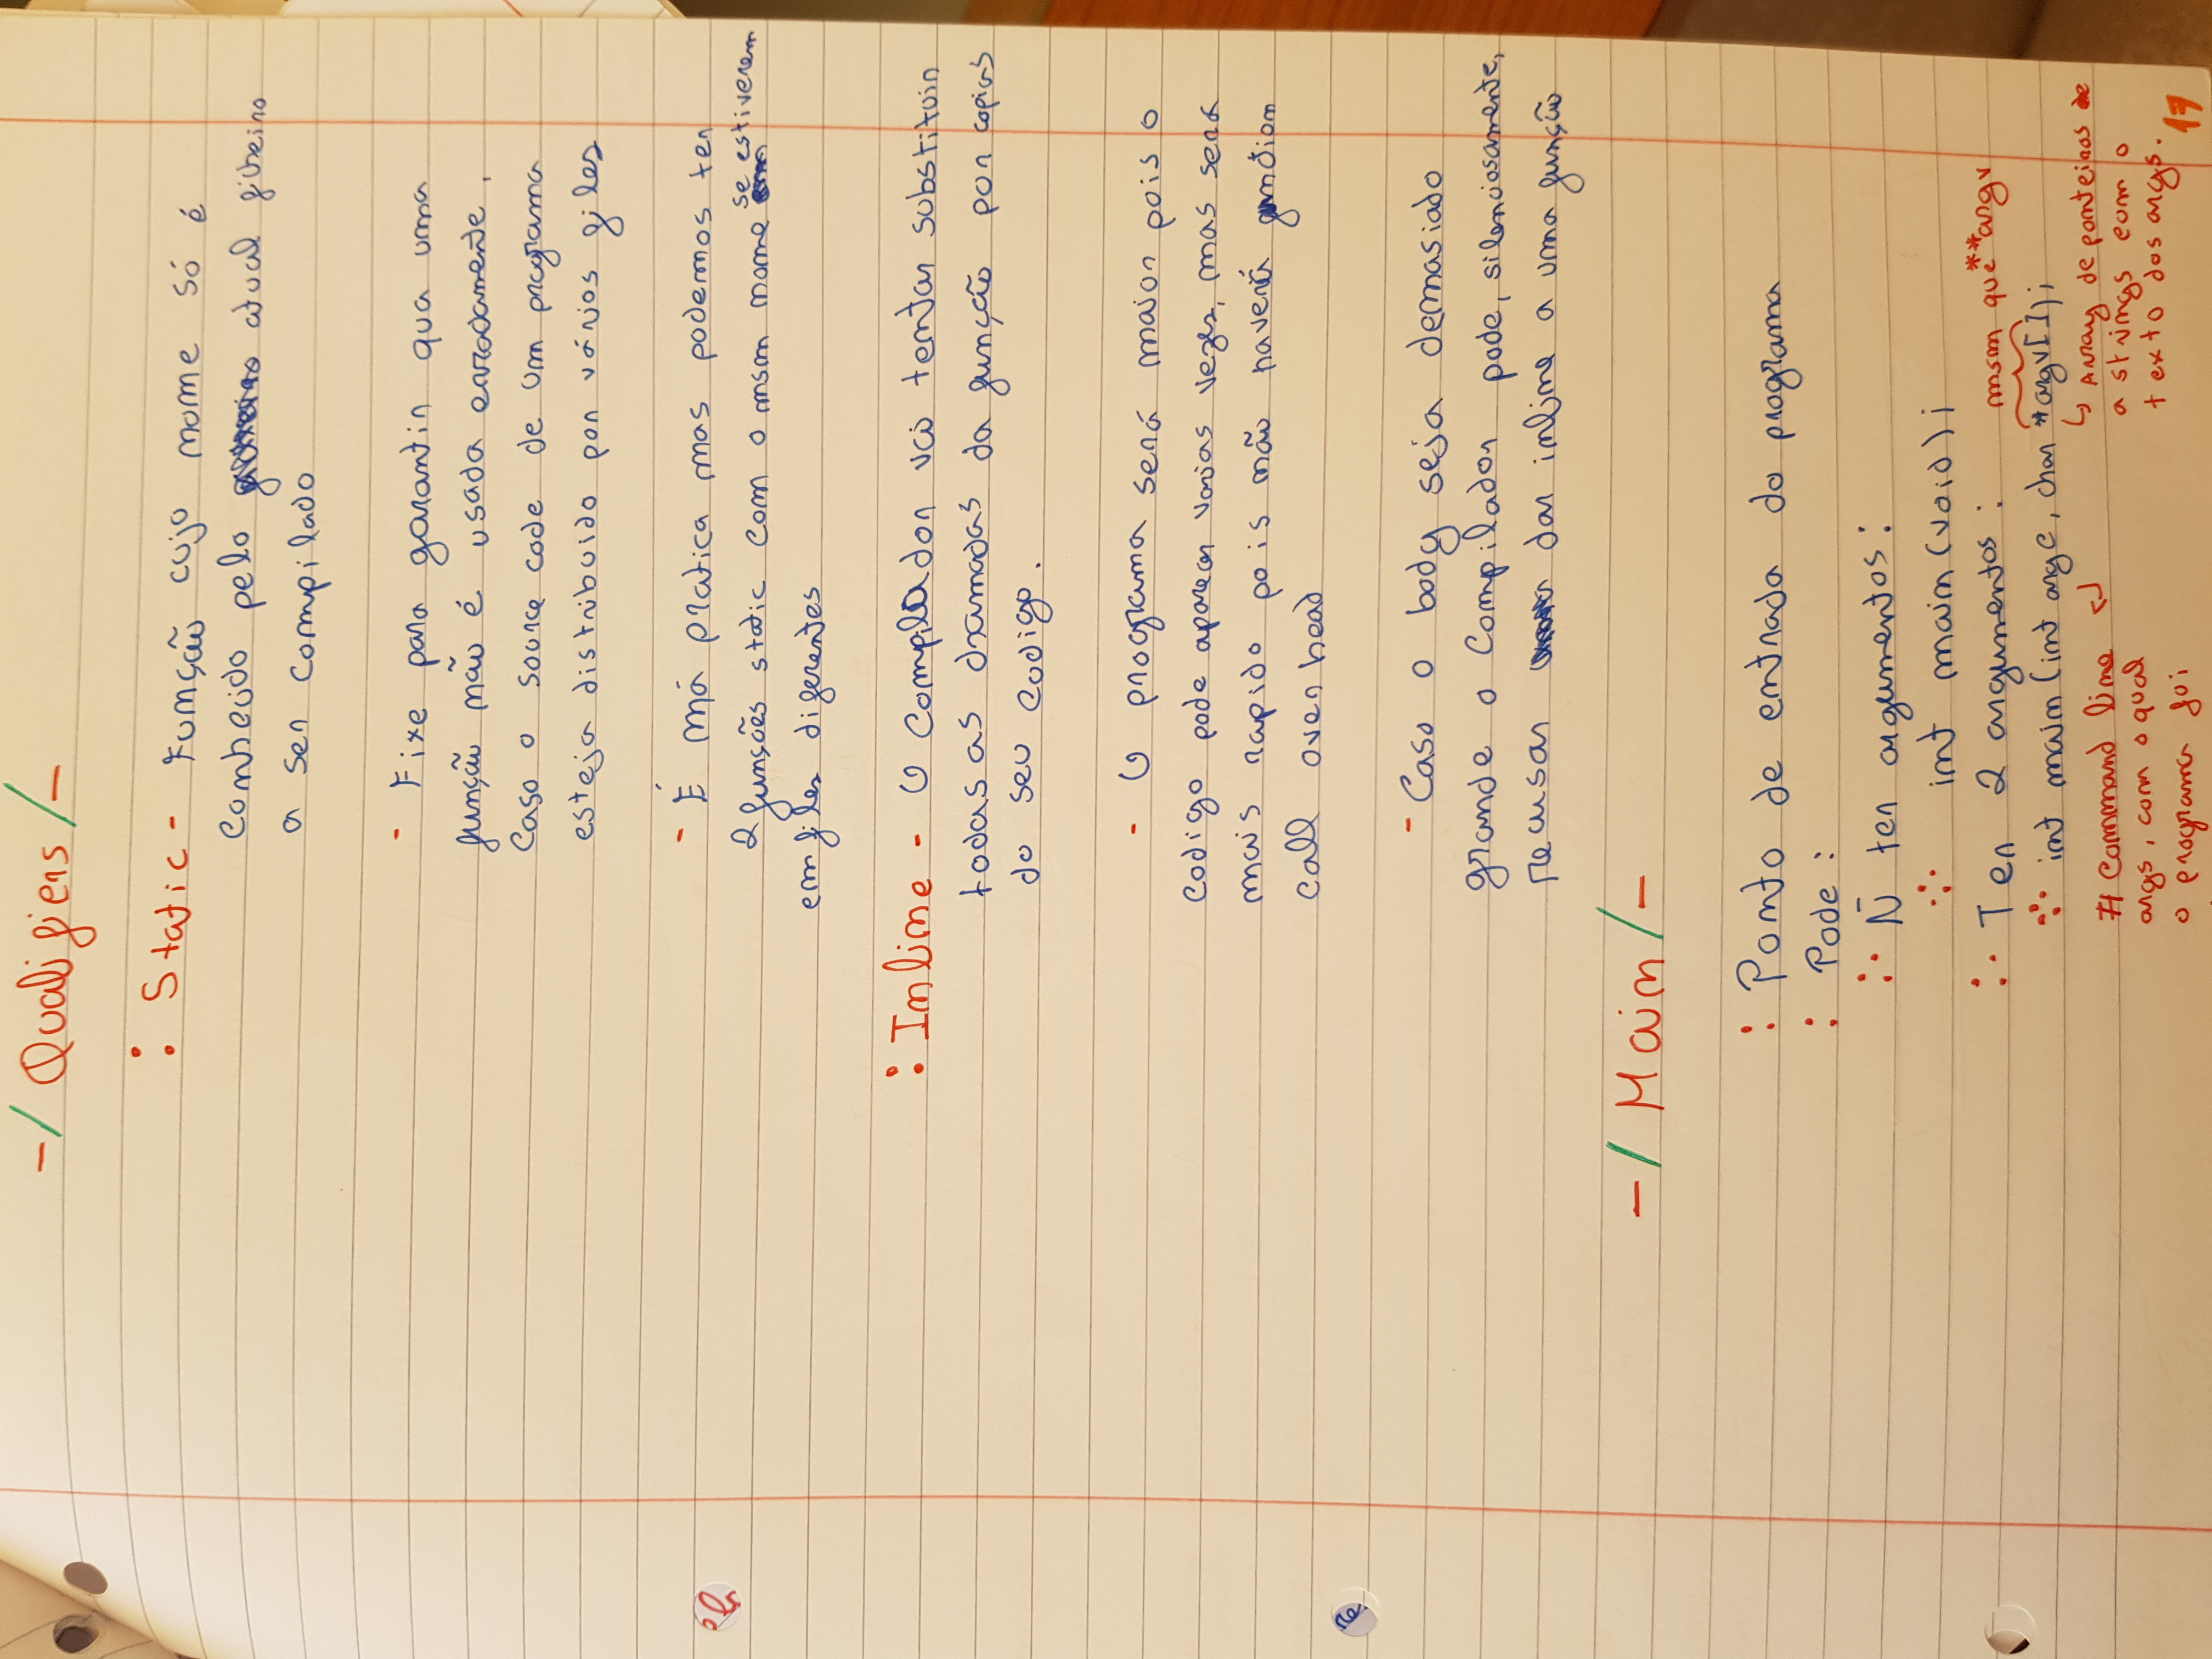 -/ Qualifiers /-
: Static - Função cujo nome só é
conhecido pelo atual ficheiro
a ser compilado
- Fixe para garantir qua uma
função não é usada erradamente.
Caso o source code de um programa
esteja distribuido por vários files
- É má pratica mas podemos ter
2 funções static com o msm nome se estiverem
em files diferentes
: Inline - O compilador vai tentar substituir
todas as chamadas da função por copias
do seu codigo.
- O programa será maior pois o
codigo pode aparecer varias vezes, mas será
mais rapido pois não haverá function
call overhead
- Caso o body seja demasiado
grande o compilador pode, silenciosamente,
recusar dar inline a uma função
-/ Main /-
: Ponto de entrada do programa
: Pode :
Ñ ter argumentos :
int main (void) ;
Ter 2 argumentos :
msm que **argv
int main (int argc, char *argv[]) ;
# Command line ↵
args, com o qual
o programa foi
↳ Array de ponteiros
a strings com o
texto dos args.
17